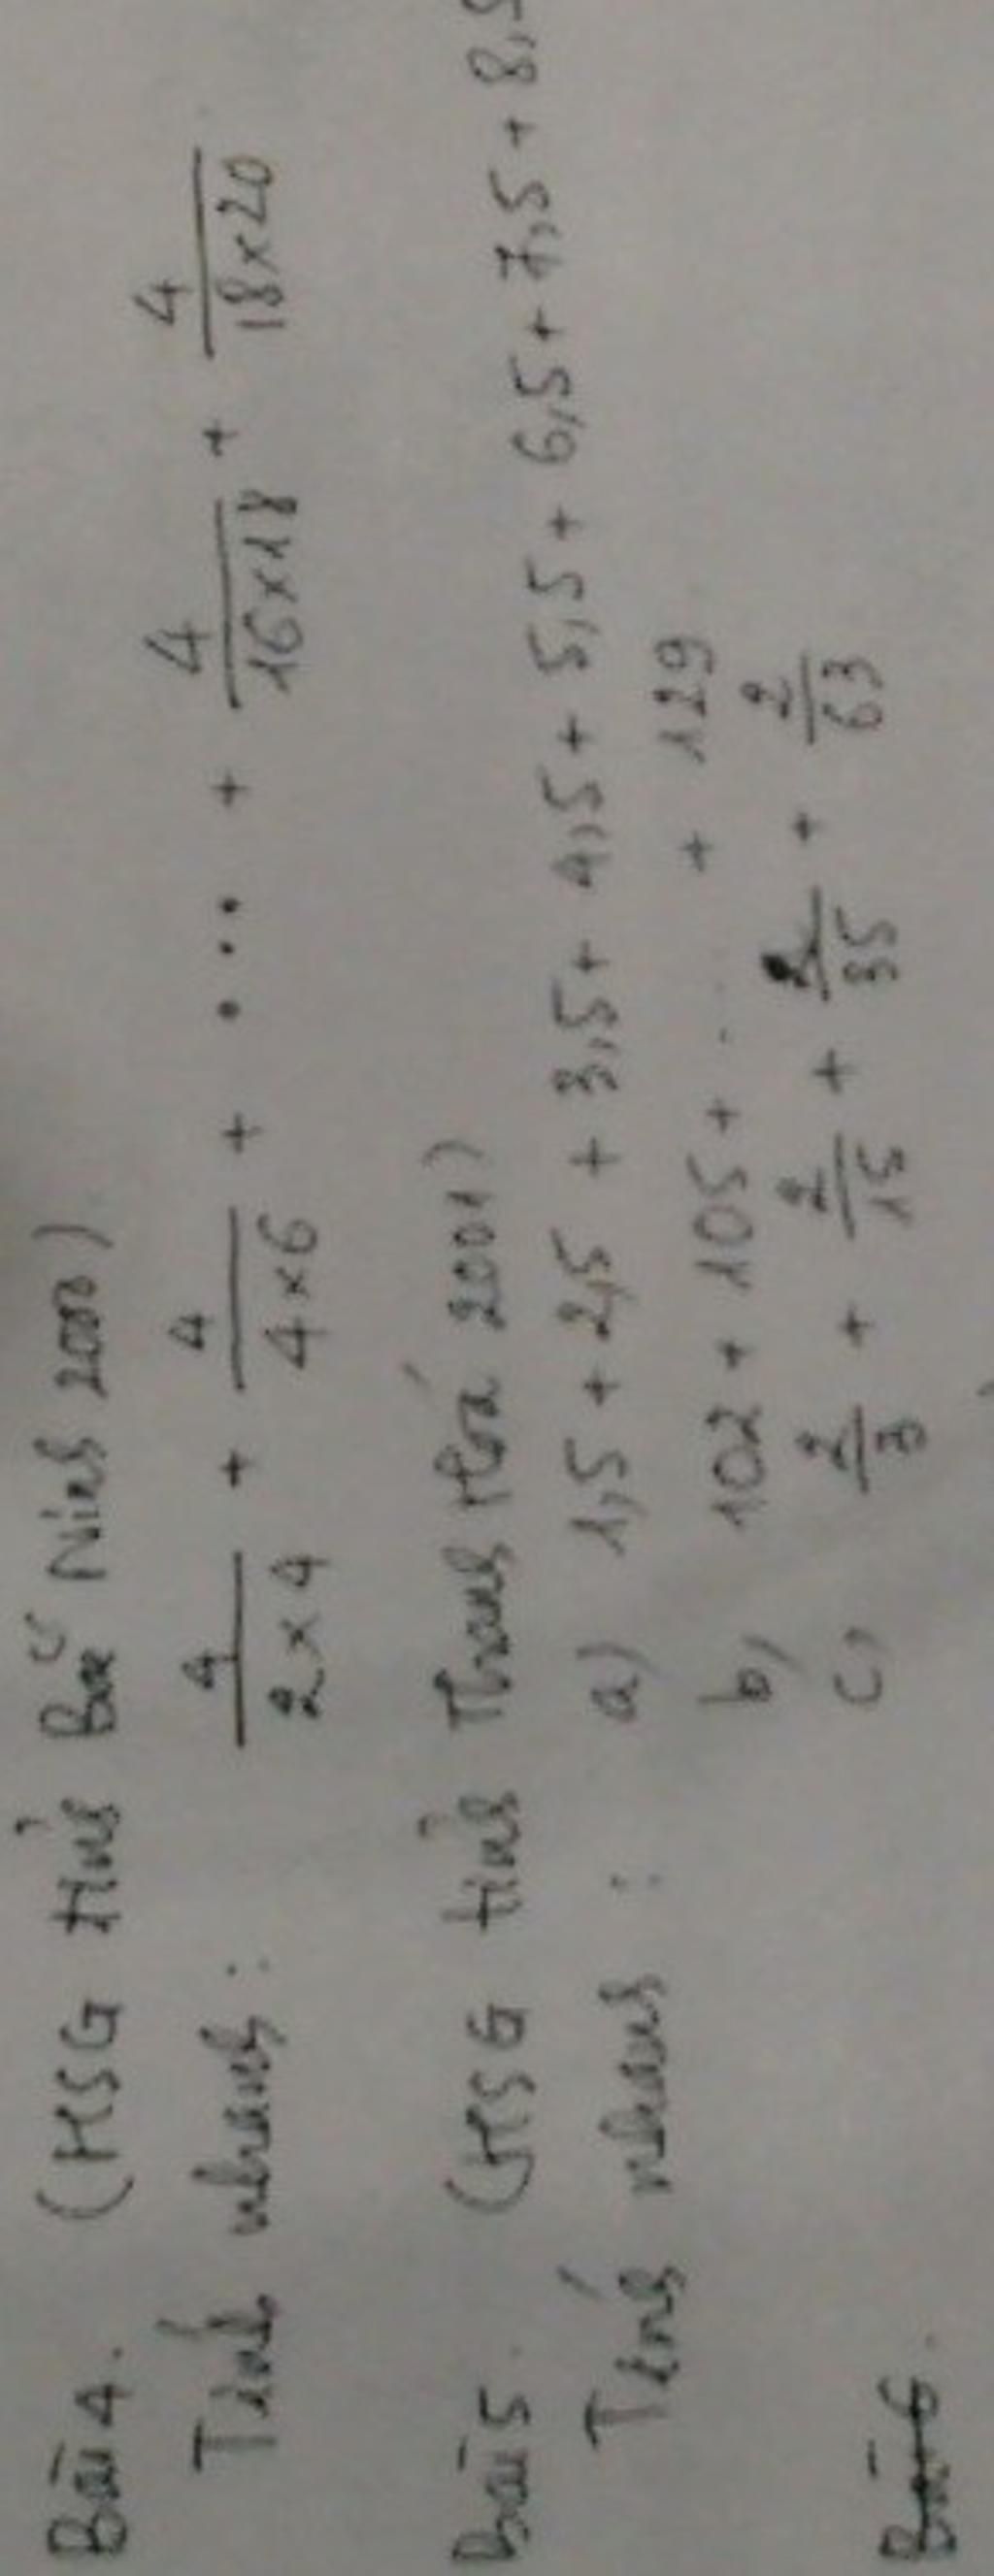 Bài 4. (HSG Tỉnh Bắc Ninh 2000)
Tính nhanh: 4/(2×4) + 4/(4×6) + ... + 4/(16×18) + 4/(18×20)
Bài 5. (HSG tỉnh Thanh Hoá 2001)
Tính nhanh: a) 1,5 + 2,5 + 3,5 + 4,5 + 5,5 + 6,5 + 7,5 + 8,5
b) 102 + 105 + ... + 129
c) 2/3 + 2/15 + 2/35 + 2/63
Bài 6.